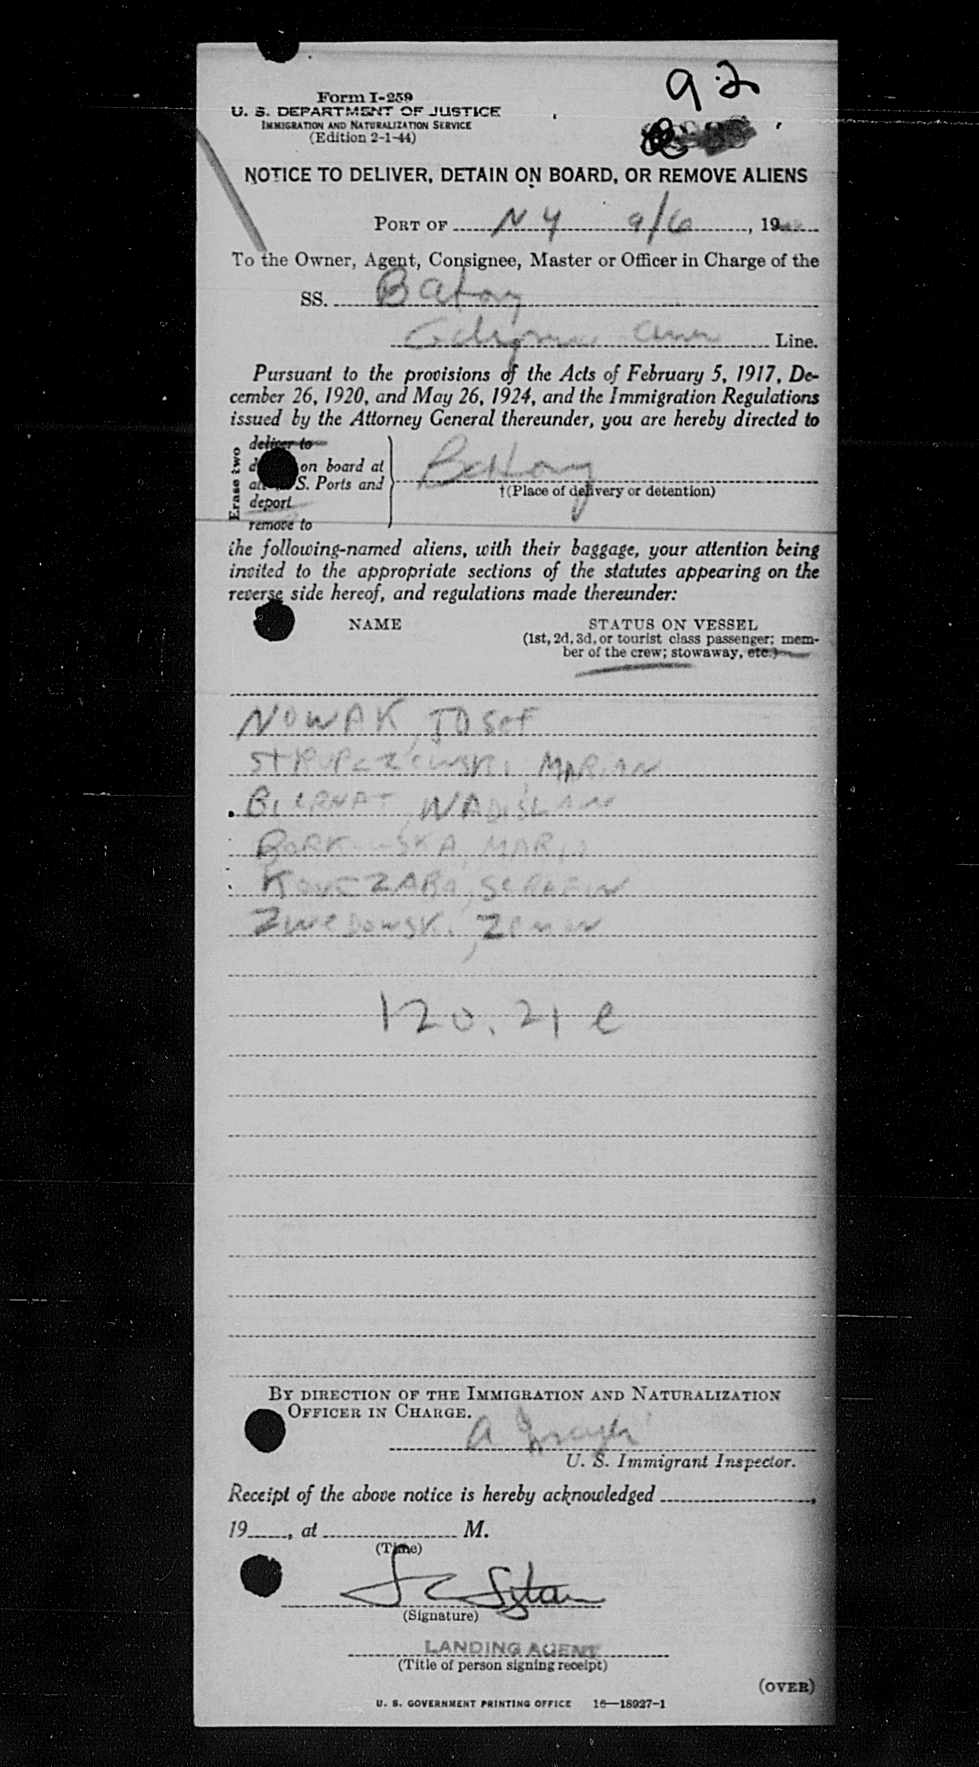 92
Form I-259
U. S. DEPARTMENT OF JUSTICE
IMMIGRATION AND NATURALIZATION SERVICE
(Edition 2-1-44)
NOTICE TO DELIVER, DETAIN ON BOARD, OR REMOVE ALIENS
PORT OF N Y 9/6, 19
To the Owner, Agent, Consignee, Master or Officer in Charge of the
SS. Batory
Line.
Pursuant to the provisions of the Acts of February 5, 1917, De-
cember 26, 1920, and May 26, 1924, and the Immigration Regulations
issued by the Attorney General thereunder, you are hereby directed to
Erase two
deliver to
on board at
S. Ports and
deport
remove to
Batory
†(Place of delivery or detention)
the following-named aliens, with their baggage, your attention being
invited to the appropriate sections of the statutes appearing on the
reverse side hereof, and regulations made thereunder:
NAME
STATUS ON VESSEL
(1st, 2d, 3d, or tourist class passenger; mem-
ber of the crew; stowaway, etc.)
NOWAK, JOSEF
MARIAN
BIERNAT,
BORKOWSKA, MARIA
120.21 e
BY DIRECTION OF THE IMMIGRATION AND NATURALIZATION
OFFICER IN CHARGE.
A
U. S. Immigrant Inspector.
Receipt of the above notice is hereby acknowledged ,
19 , at M.
(Time)
(Signature)
LANDING AGENT
(Title of person signing receipt)
(OVER)
U. S. GOVERNMENT PRINTING OFFICE 16—18927-1